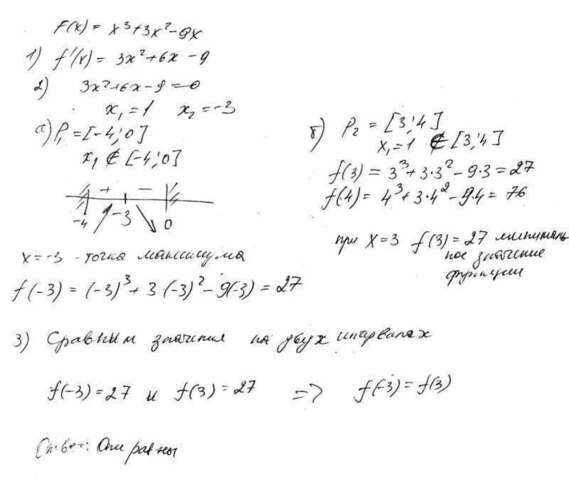 f(x) = x³+3x²-9x
1) f'(x) = 3x²+6x-9
2) 3x²+6x-9=0
x₁=1 x₂=-3
а) P₁=[-4;0]
x₁ ∉ [-4;0]
+ -
-4 -3 0
x=-3 - точка максимума
f(-3) = (-3)³+3(-3)²-9(-3) = 27
б) P₂ = [3;4]
x₁=1 ∉ [3;4]
f(3) = 3³+3·3²-9·3=27
f(4) = 4³+3·4²-9·4= 76
при x=3 f(3)=27 минималь
ное значение
функции
3) Сравним значения на двух интервалах
f(-3)=27 и f(3)=27 => f(-3)=f(3)
Ответ: Они равны